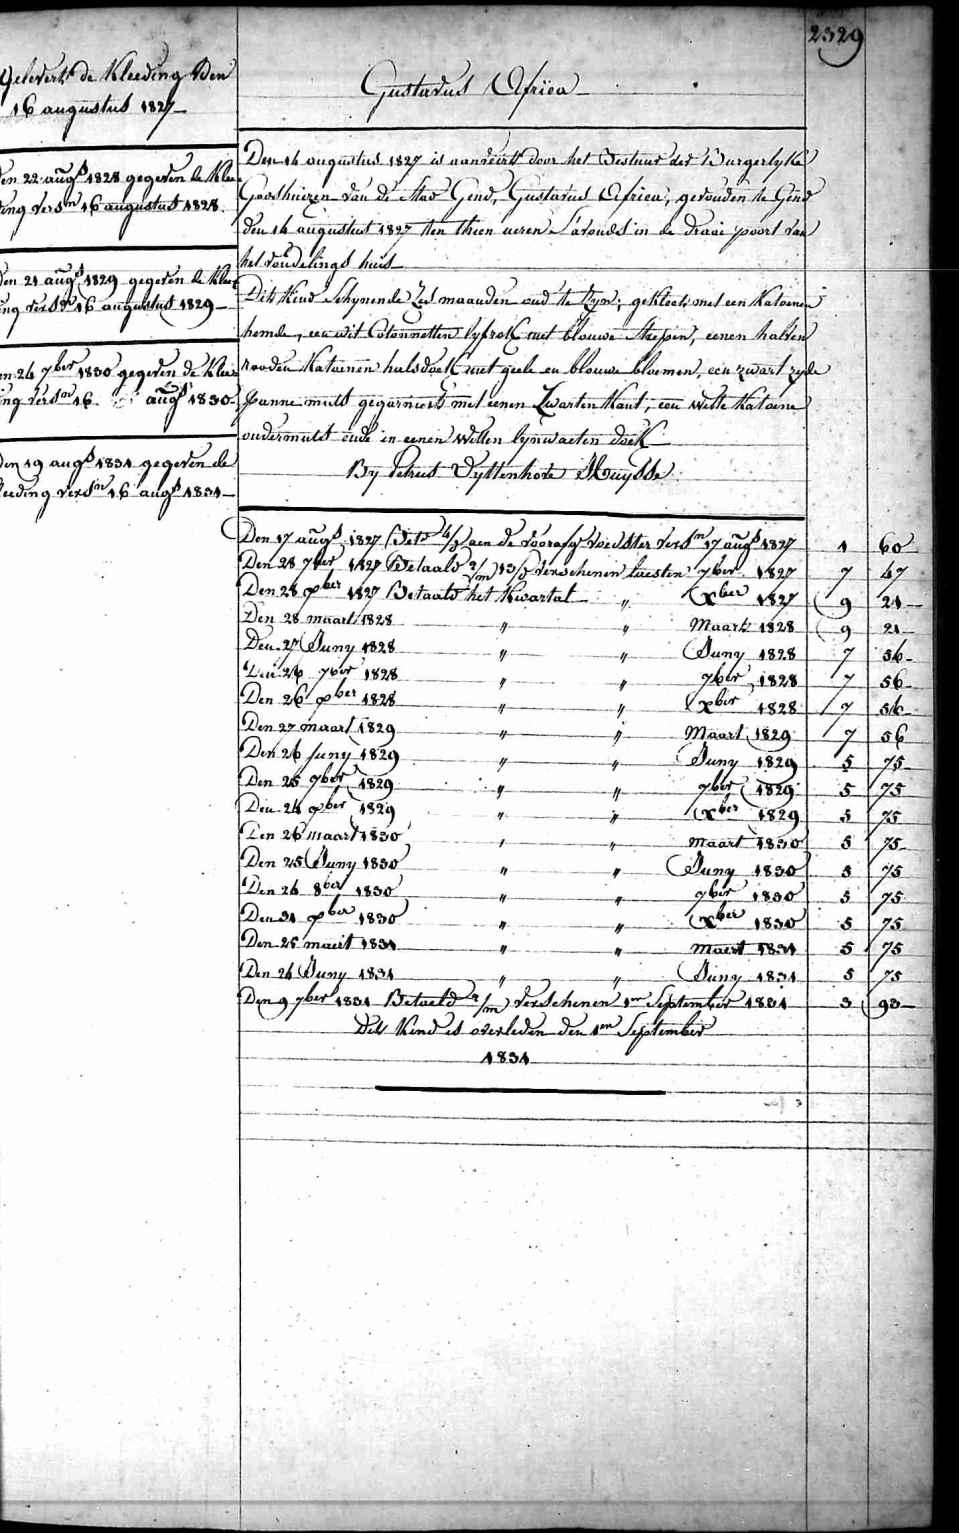 2329
Gelevert de Kleeding den
16 augustus 1827
den 22 augs 1828 gegeven de Klee
ding versn 16 augustus 1828
den 21 augs 1829 gegeven de Klee
ing versn 16 augustus 1829
en 24 7ber 1830 gegeven de Klee
ing versn 16 augs 1830
den 19 augs 1831 gegeven de
leeding versn 16 augs 1831
Gustavus Africa
Den 14 augustus 1827 is aanveirt door het Bestuur der Burgerlyke
Godshuizen van de Stad Gend, Gustavus Africa, gevonden te Gend
den 14 augustus 1827 ten thien ueren s'avonds in de draai poort van
het vondelings huis
Dit Kind Schynende Zes maanden oud te Zyn; gekleet met een Katoenen
hemde, een wit Cotonnetten lyfrok met blauwe Strepen, eenen halven
rooden Katoenen halsdoek met geele en blauwe bloemen, een zwart zyde
panne muts gegarneert met eenen Zwarten Kant, een witte Katoene
ondermuts ende in eenen witten lynwaeten doek
By Petrus Uyttenhove Huysse
Den 17 augs 1827 Betd aen de voorafg voedster versn 17 augs 1827 1 60
Den 28 7ber 1827 Betaald 2/m 13/d verschenen luesten 7ber 1827 7 47
Den 28 xber 1827 Betaald het Kwartal " xber 1827 9 21
Den 28 maart 1828 " " Maart 1828 9 21
Den 27 Juny 1828 " " Juny 1828 7 56
Den 26 7ber 1828 " " 7ber 1828 7 56
Den 26 xber 1828 " " xber 1828 7 56
Den 27 maart 1829 " " Maart 1829 7 56
Den 26 Juny 1829 " " Juny 1829 5 75
Den 25 7ber 1829 " " 7ber 1829 5 75
Den 24 xber 1829 " " xber 1829 5 75
Den 26 maart 1830 " " maart 1830 5 75
Den 25 Juny 1830 " " Juny 1830 5 75
Den 26 8ber 1830 " " 7ber 1830 5 75
Den 31 xber 1830 " " xber 1830 5 75
Den 25 maert 1831 " " maert 1831 5 75
Den 24 Juny 1831 " " Juny 1831 5 75
Den 9 7ber 1831 Betaeld 2/m verschenen 1en September 1831 3 93
Dit Kind is overleden den 1en September
1831